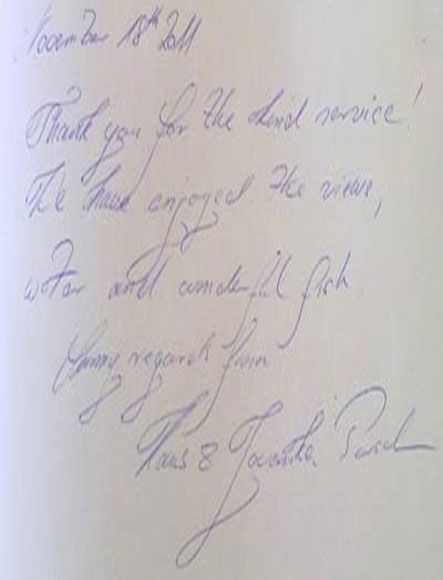 November 18th 2011
Thank you for the kind service!
We have enjoyed the view,
water and wonderful fish.
regards from
Hans &